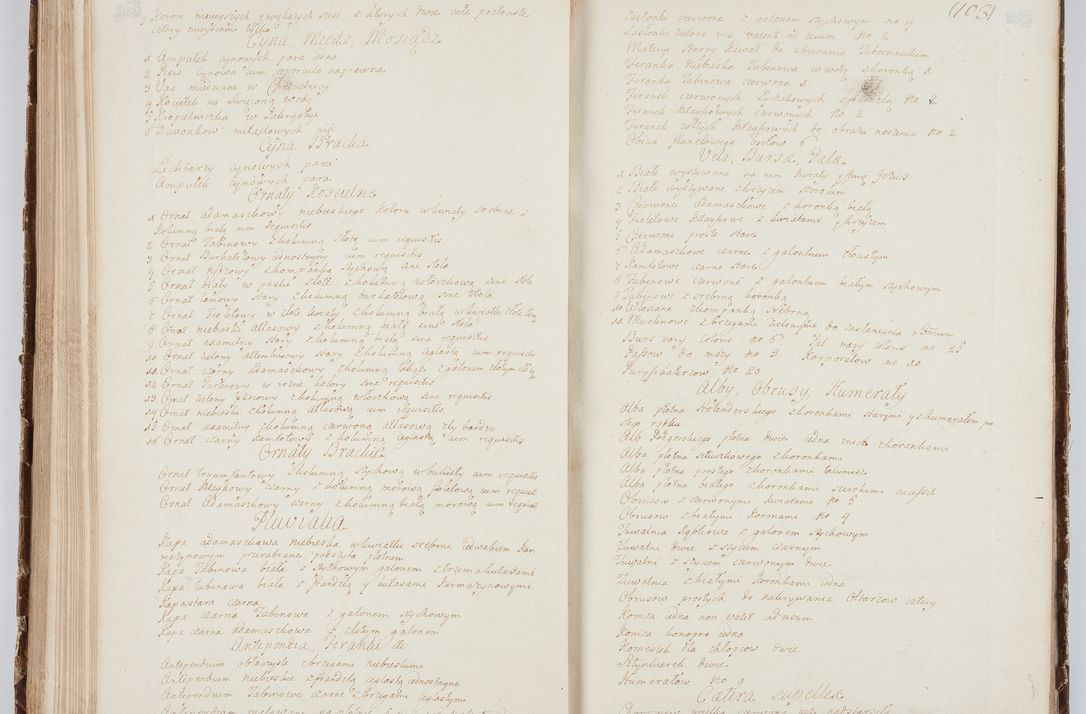 Koron mnieyszych y większych sześć, z których dwie całe pozłociste
cztery mieyscami tylko
Cyna, Miedz, Mosiądz
1 Ampułek cynowych para iedna
2 Nais cynowa cum operculo naprawna
3 Vas miedziane w Chrzcielnicy
4 Kociełek na święconą wodę
5 Kropielniczka w Zakrystyi
6 Dzwonkow metallowych pięć
Cyna Bracka
Lichtarzy cynowych para
Ampułek cynowych para
Ornaty Koscielne
1 Ornat adamaszkowy niebieskiego koloru w kwiaty srebrne z
kolumną białą cum requisitis
2 Ornat Tabinowy z kolumną złotą cum requisitis
3 Ornat Burkatelowy iednostayny cum requisitis
4 Ornat Pąsowy z kompanką szychową sine stola
5 Ornat biały w paski złote z kolumną włoczkową sine stola
6 Ornat lamowy stary z kolumną burkatelową sine stola
7 Ornat fioletowy w złote kwiaty z kolumną białą w kwiatki złote
8 Ornat niebieski atłasowy z kolumną białą sine stola
9 Ornat axamitny stary z kolumną białą sine requisitis
10 Ornat zielony altembasowy stary z kolumną ceglastą cum requisitis
11 Ornat czarny adamaszkowy z kolumną takąż z galonem złotym
12 Ornat Parterowy w rozne kolory sine requisitis
13 Ornat zielony plisowy z kolumną włoczkową sine requisitis
14 Ornat niebieski z kolumną atłasową cum requisitis
15 Ornat axamitny z kolumną czerwoną atłasową zły bardzo
16 Ornat czarny kamlotowy z kolumną ceglastą cum requisitis
Ornaty Brackie
Ornat tryumfantowy z kolumną szychową w bukiety cum requisitis
Ornat kitaykowy czarny z kolumną morową fioletową cum requisit
Ornat Adamaszkowy czarny z kolumną białą morową cum requisit
Pluvialia
Kapa adamaszkowa niebieska w kwiatki srebrne iedwabiem kar
mazynowym przerabiane podszyta płotnem
Kapa Tabinowa biała z szychowym galonem z trzema kutasami
Kapa tabinowa biała z frandzlą y kutasami karmazynowymi
Kapa stara czarna
Kapa czarna Tabinowa z galonem szychowym
Kapa czarna adamaszkowa z złotym galonem
Antependia, Firanki etc
Antependium obłoczyste z brzegami niebieskimi
Antependium niebieskie z frandzlą ceglastą iednostayne
Antependium Tabinowe czarne z brzegami ceglastymi
Antependium malowane na płotnie
(105)
Zasłonki czerwone z galonem szychowym no 4
Zasłonki zielone vix valent ad usum No 2
Materyi starey kawał do ubierania Tabernaculum
Firanka niebieska Tabinowa w wodę z koronką 1
Firanka Tabinowa czerwona 1
Firanek czerwonych z frandzlą No 2
Firanek kitaykowych czerwonych No 2
Firanek żółtych kitaykowych do obrazu noszenia No 2
Obicia flanelowego bretow 6
Vela, Bursæ, Palæ
1 Białe wyszywane na nim kwiaty y Imię Jezus
2 Białe wyszywane z krzyżem szerokim
3 Czerwone adamaszkowe z koronką białą
4 Fioletowe kitaykowe z kwiatami y krzyżem
5 Czerwone proste stare
6 Adamaszkowe czarne z galonkiem złocistym
7 Kamlotowe czarne stare
8 Tabinowe czerwone z galonkiem białym szychowym
9 Tabinowe z srebrną koronką
10 Włosiane z kompanką srebrną
11 Muslinowe z brzegami zielonymi do zasłaniania SSmum
Burs varij coloris no 6 Pal varij coloris no 25
Pasków do mszy no 3 Korporałow no 10
Puryfikaterzow No 20
Alby, Obrusy, Humerały
Alba płotna Hollenderskiego z koronkami starymi y z humerałem po
tego rąbku
Alb Podgorskiego płotna dwie iedna z koronkami
Alba płotna z koronkami
Alba płotna prostego z koronkami
Alba płotna białego z koronkami szerokimi accessit
Obrusow z czerwonymi kwiatami No 5
Obrusow z białymi koronami No 4
Tuwalnia Rąbkowa z galonem szychowym
Tuwalni dwie z szyciem czarnym
Tuwalni z szyciem czerwonym dwie
Tuwalnia z białymi koronkami iedna
Obrusow prostych do nakrywania Ołtarzow cztery
Komża iedna non valet ad usum
Komża konopna iedna
Komeżek dla chłopcow dwie
Ręczników dwie
Humerałow No 9
Cætera supellex